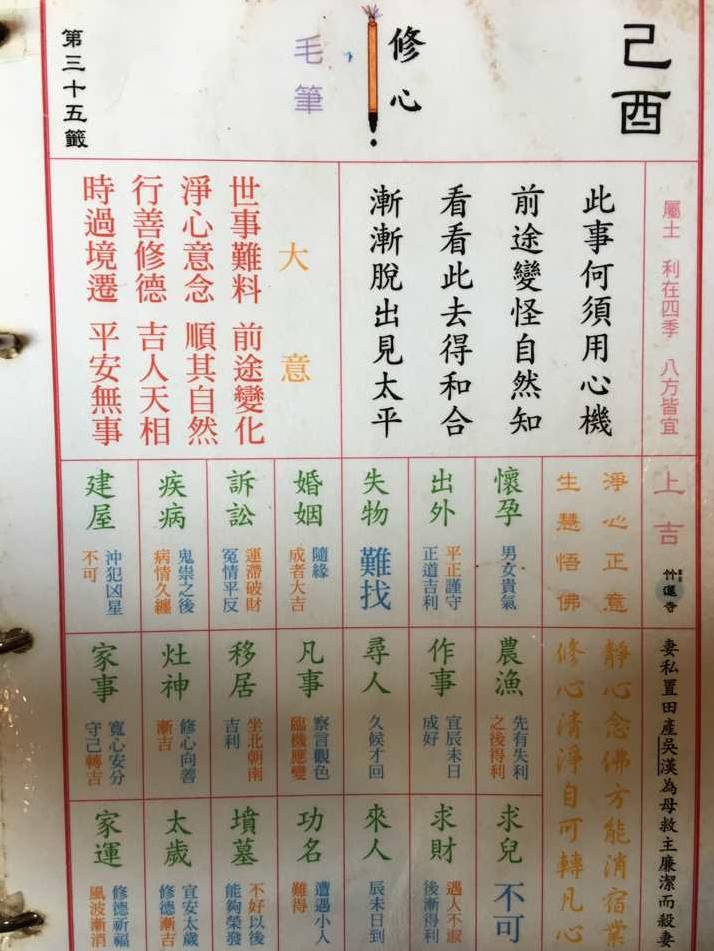 己酉
修心
毛筆
第三十五籤
屬土 利在四季 八方皆宜
此事何須用心機
前途變怪自然知
看看此去得和合
漸漸脫出見太平
大意
世事難料 前途變化
淨心意念 順其自然
行善修德 吉人天相
時過境遷 平安無事
上吉
竹蓮寺
妻私置田產吳漢為母救主廉潔而殺妻
淨心正意 靜心念佛方能消宿業
生慧悟佛 修心清淨自可轉凡心
懷孕
男女貴氣
出外
平正謹守
正道吉利
失物
難找
婚姻
隨緣
成者大吉
訴訟
運滯破財
冤情平反
疾病
鬼祟之後
病情久纏
建屋
沖犯凶星
不可
農漁
先有失利
之後得利
作事
宜辰未日
成好
尋人
久候才回
凡事
察言觀色
臨機應變
移居
坐北朝南
吉利
灶神
修心向善
漸吉
家事
寬心安分
守己轉吉
求兒
不可
求財
遇人不淑
後漸得利
來人
辰未日到
功名
遭遇小人
難得
墳墓
不好以後
能夠榮發
太歲
宜安太歲
修德漸吉
家運
修德祈福
風波漸消